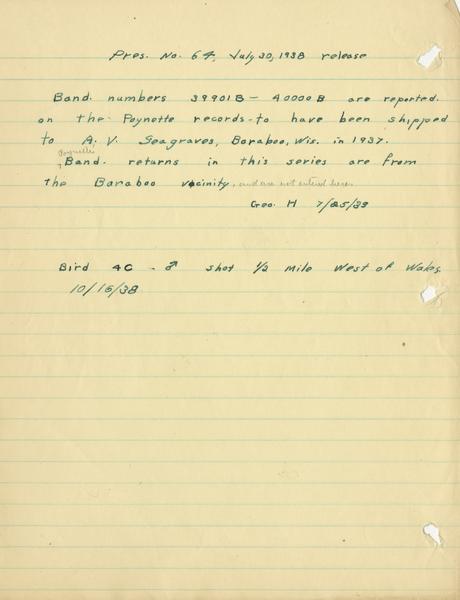 Pres. No. 64, July 30, 1938 release
Band numbers 39901B - 40000B are reported
on the Poynette records to have been shipped
to A. V. Seagraves, Baraboo, Wis. in 1937.
Poynette
Band returns in this series are from
the Baraboo vicinity, and are not entered here.
Geo. H 7/25/39
Bird 4C - ♂ shot 1/2 mile West of Wales
10/16/38